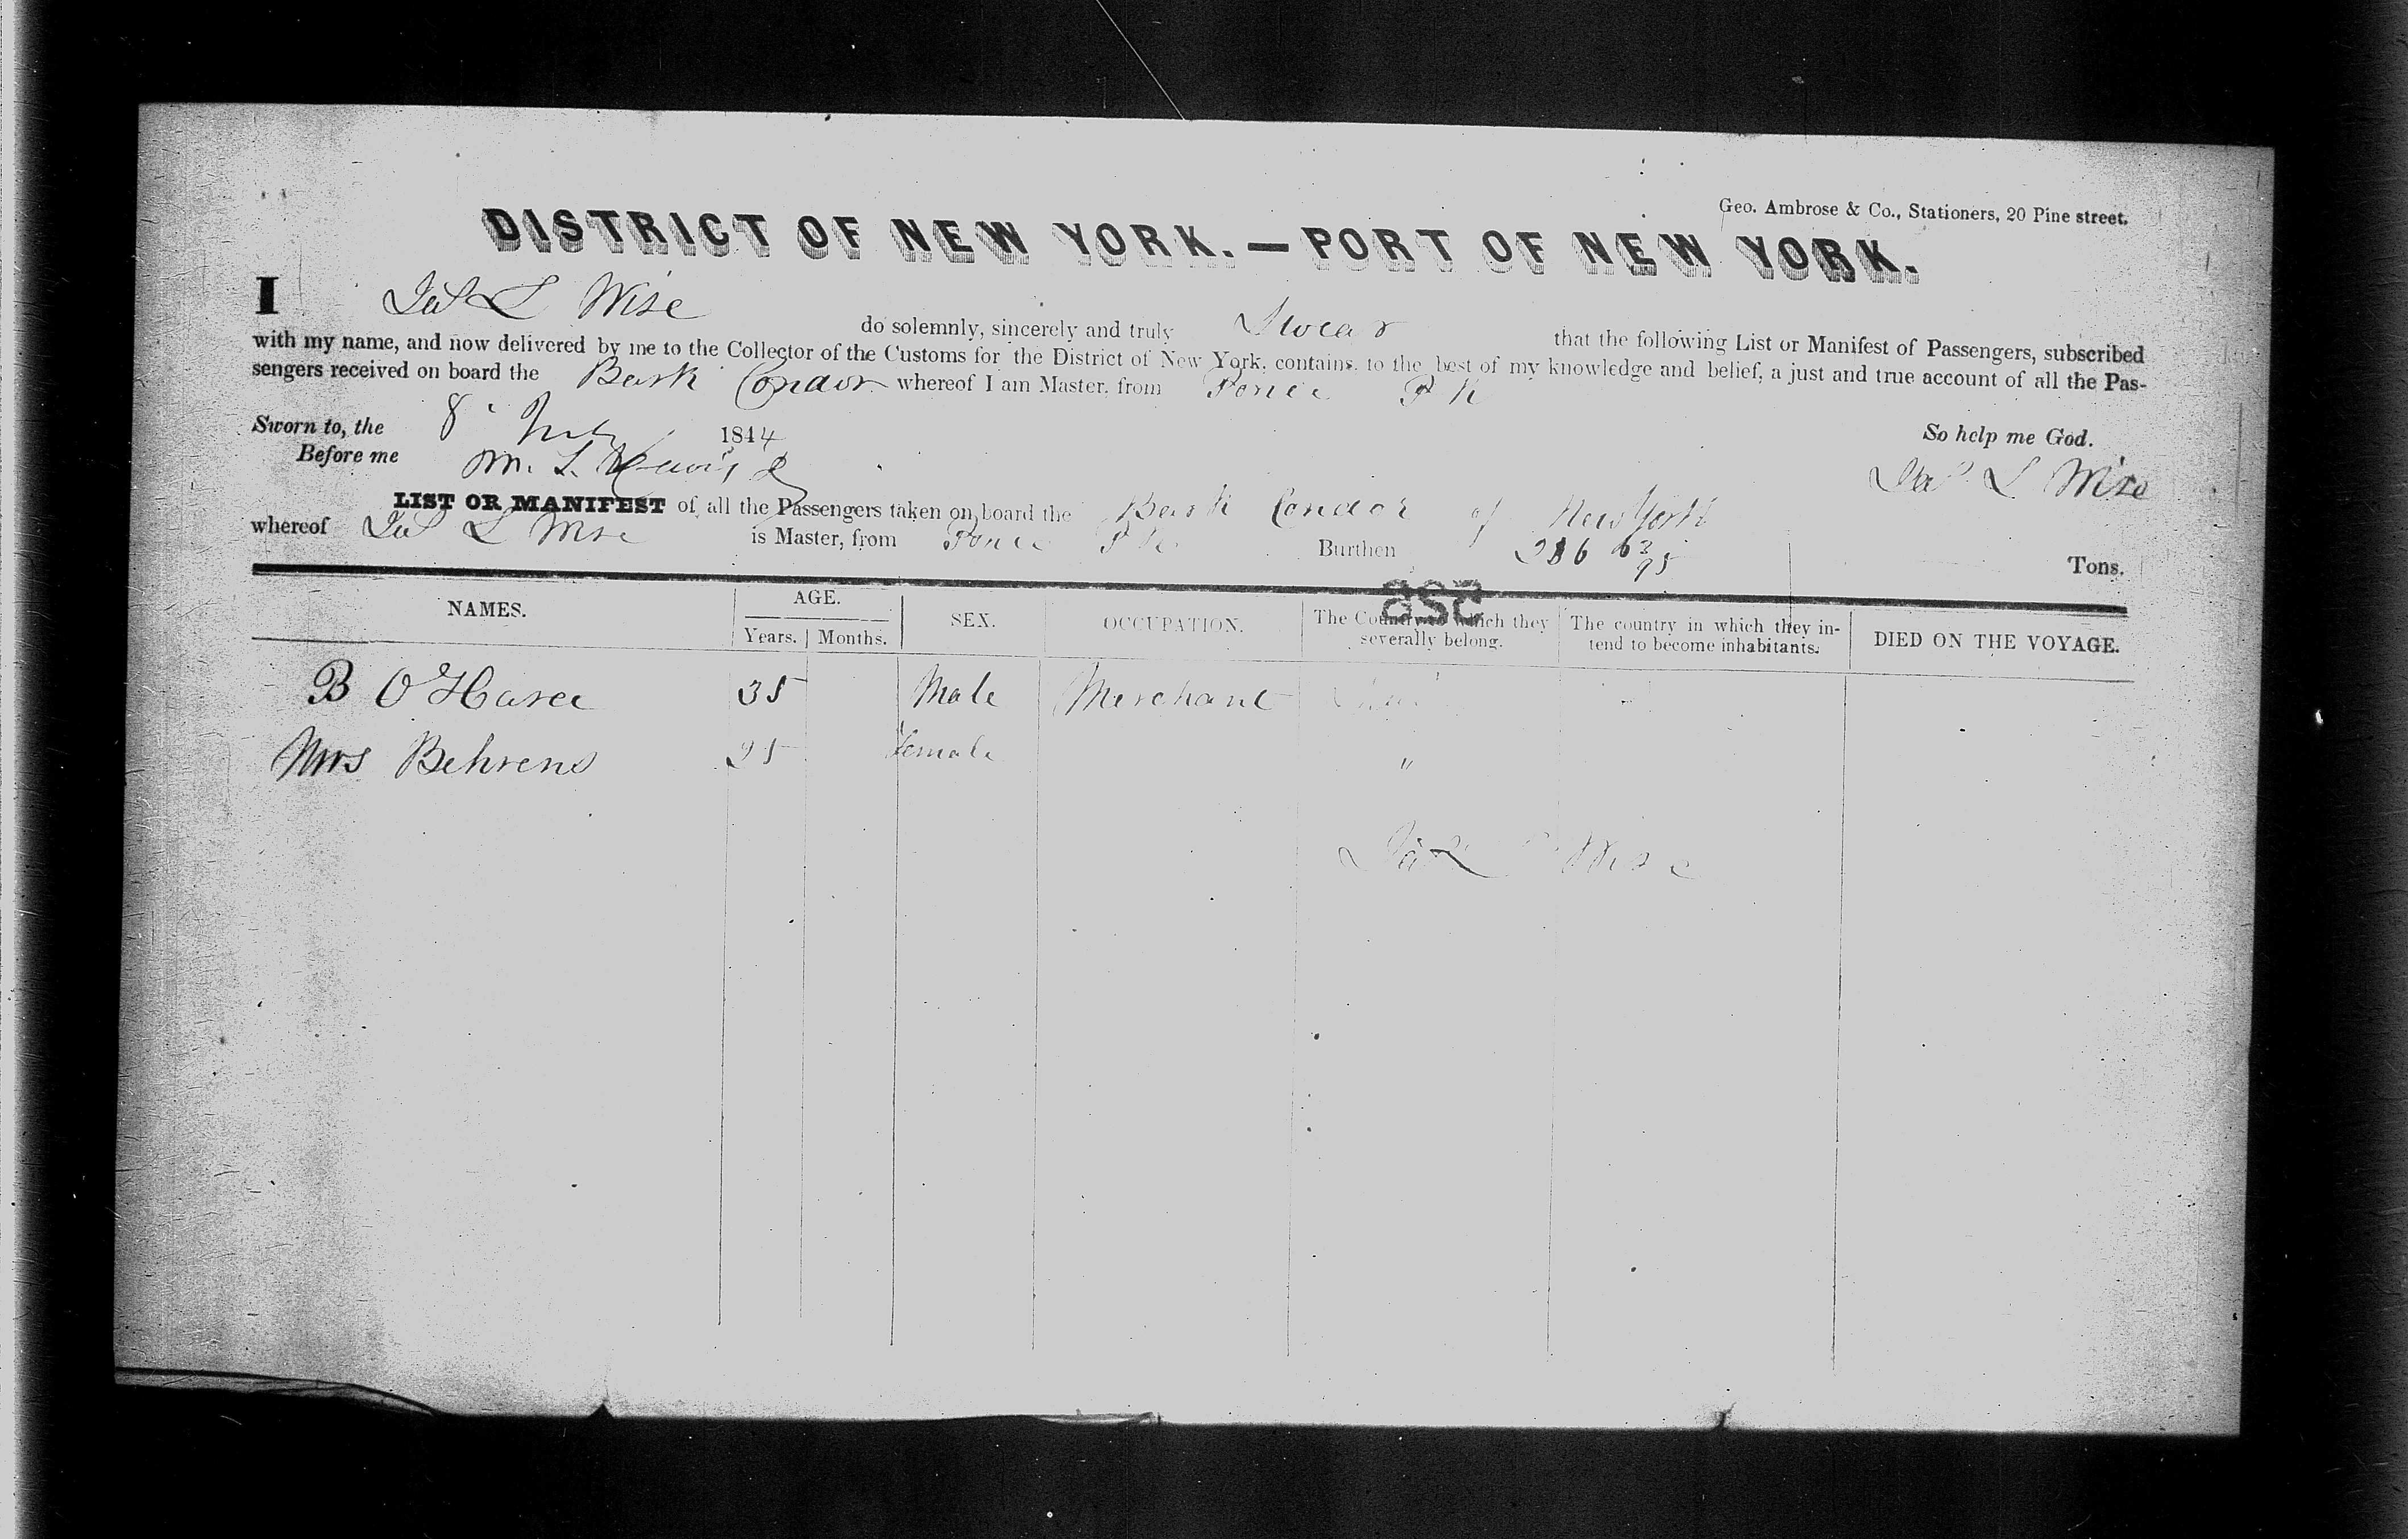 Geo. Ambrose & Co., Stationers, 20 Pine street.
DISTRICT OF NEW YORK.—PORT OF NEW YORK.
I Jas L Wise do solemnly, sincerely and truly Swear that the following List or Manifest of Passengers, subscribed
with my name, and now delivered by me to the Collector of the Customs for the District of New York, contains, to the best of my knowledge and belief, a just and true account of all the Pas-
sengers received on board the Bark Condor whereof I am Master, from Ponce P R
Sworn to, the 8 July 1844 So help me God.
Before me Jas L Wise
LIST OR MANIFEST of all the Passengers taken on board the Bark Condor of New York
whereof Jas L Wise is Master, from Ponce P R Burthen 286 63/95 Tons.
525
NAMES. AGE. SEX. OCCUPATION. The Country to which they severally belong. The country in which they in-tend to become inhabitants. DIED ON THE VOYAGE.
Years. Months.
B O'Harra 35 Male Merchant
Mrs Behrens 25 female "
Jas L Wise